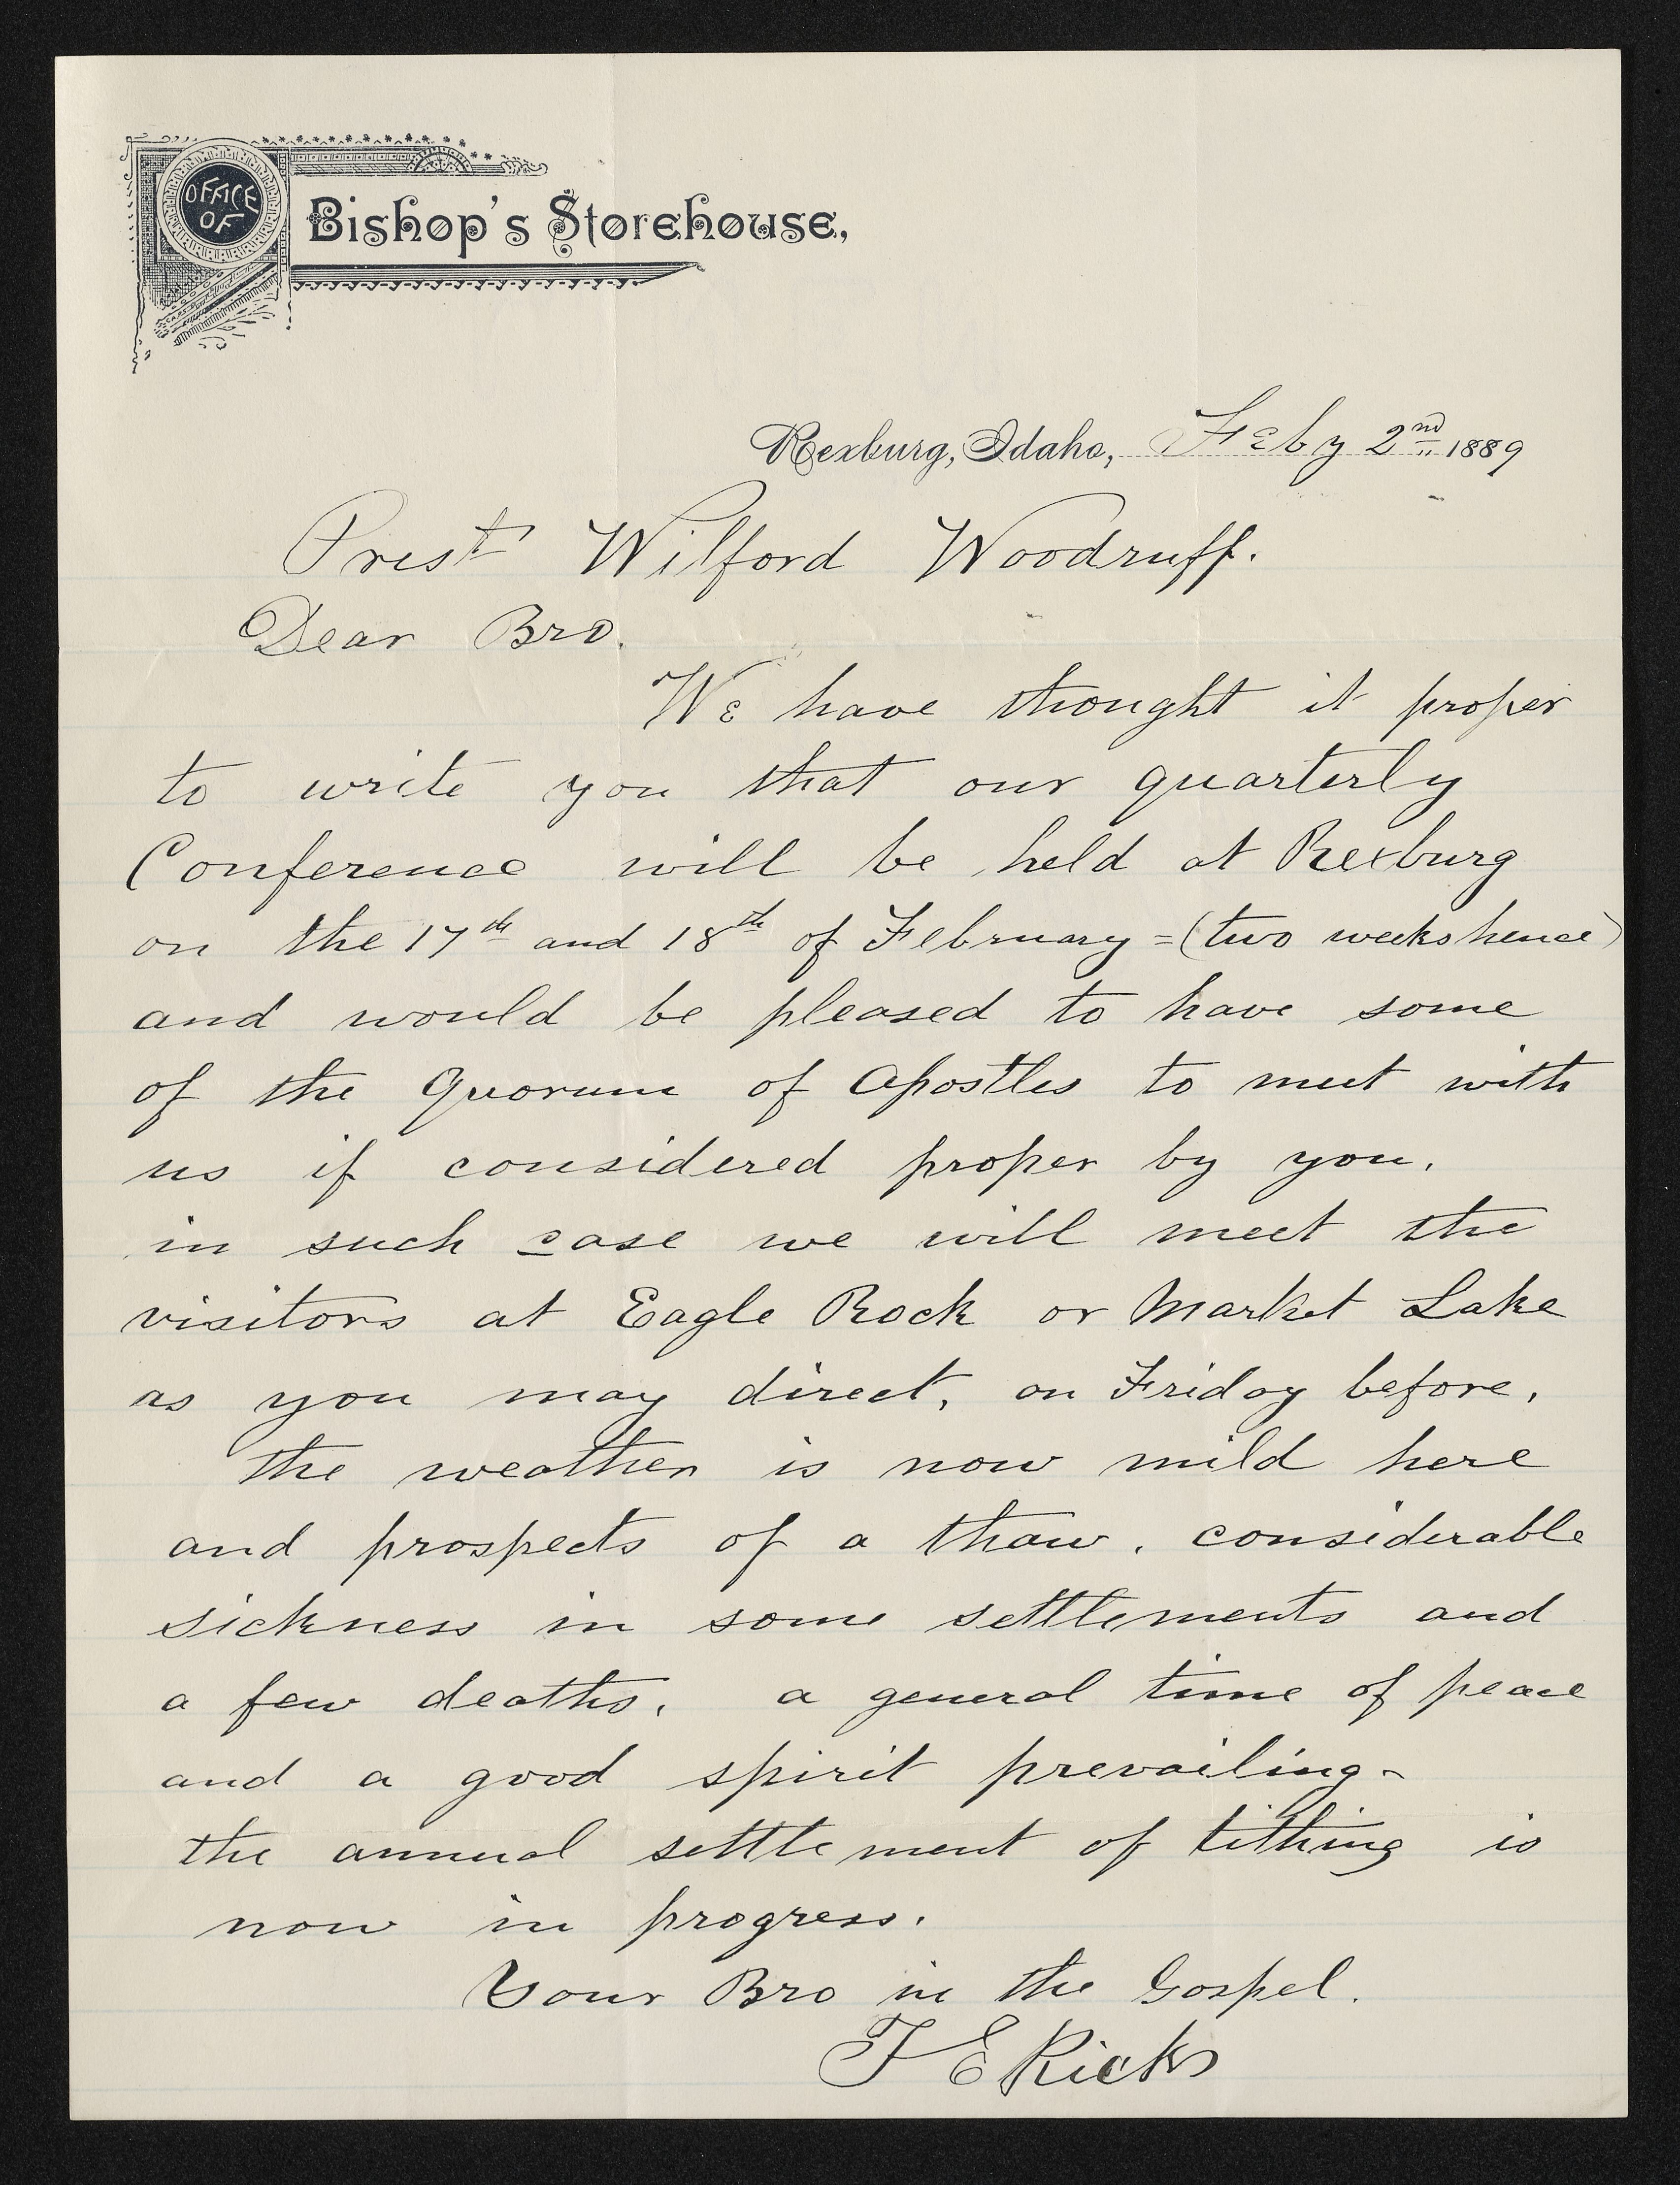 OFFICE
OF
Bishop's Storehouse,
Rexburg, Idaho, Feby 2nd 1889
Prest Wilford Woodruff.
Dear Bro.
We have thought it proper
to write you that our quarterly
Conference will be held at Rexburg
on the 17th and 18th of February = (two weeks hence)
and would be pleased to have some
of the Quorum of Apostles to meet with
us if considered proper by you.
in such case we will meet the
visitors at Eagle Rock or Market Lake
as you may direct, on Friday before.
the weather is now mild here
and prospects of a thaw. considerable
sickness in some settlements and
a few deaths. a general time of peace
and a good spirit prevailing-
the annual settlement of tithing is
now in progress.
Your Bro in the Gospel.
T E Ricks